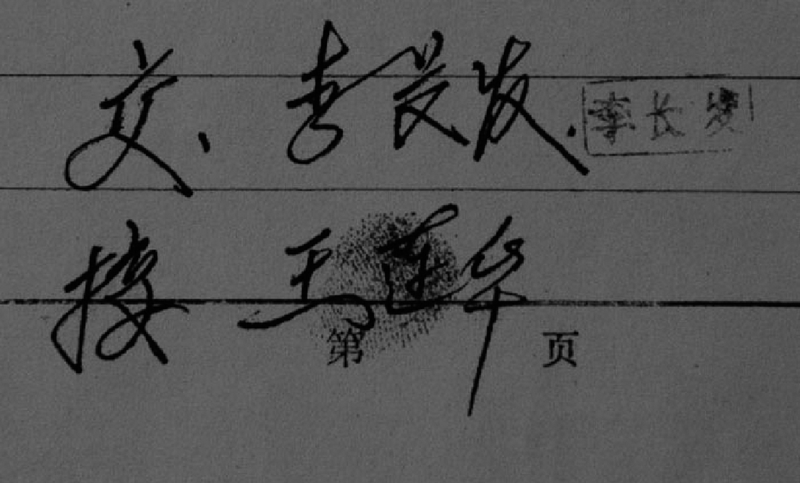 交、李长发. 李长发
接 王莲华
第 页